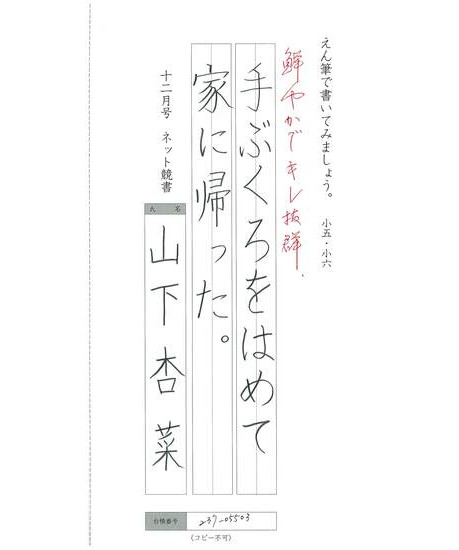 えん筆で書いてみましょう。 小五・小六
鮮やかでキレ抜群.
手ぶくろをはめて
家に帰った。
十二月号 ネット競書
氏 名
山下杏菜
台帳番号 237-05503
(コピー不可)